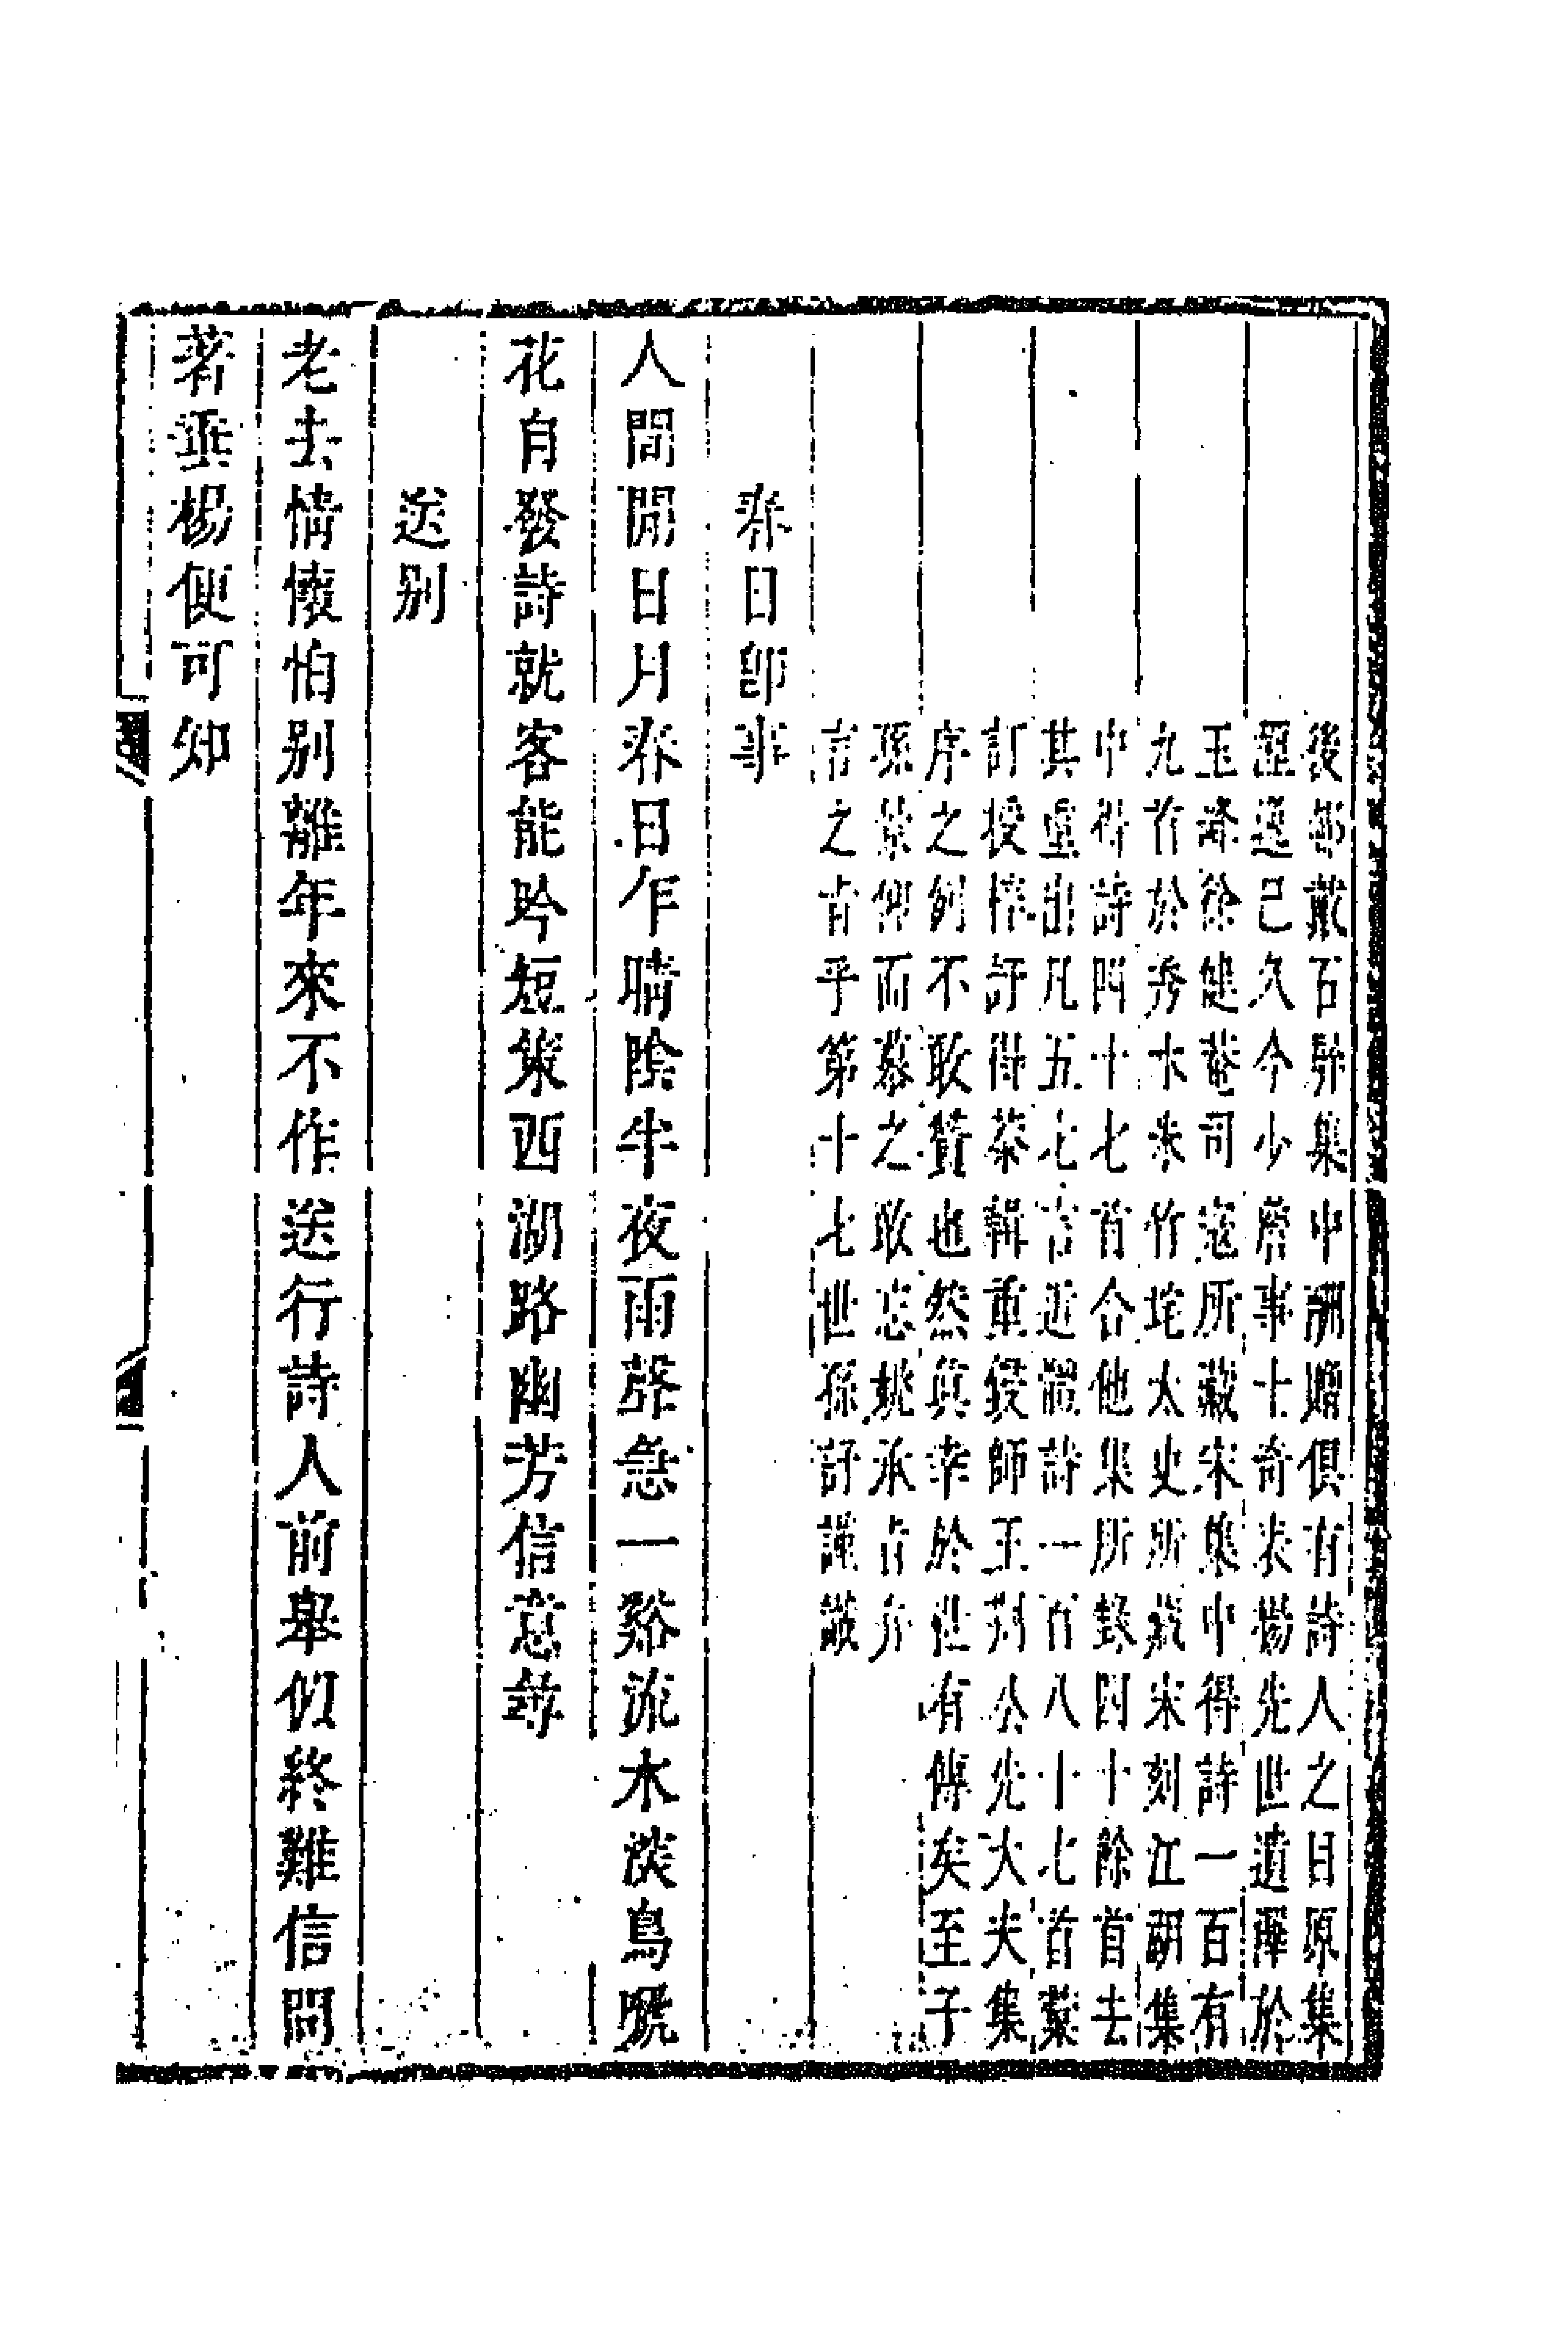 後邨戴石屏集中酬贈俱有詩人之目原集
湮遝已久今少詹事士奇求楊先世遺澤於
玉峰徐健菴司寇所藏宋集中得詩一百有
九首於秀水朱竹垞太史所藏宋刻江湖集
中得詩四十七首合他集所錄四十餘首去
其重出凡五七言近體詩一百八十七首彙
訂授梓訏得恭輯重鋟師王荆公先大夫集
序之例不敢贊也然眞幸於世有傳矣至子
孫餘仰而慕之敢忘姚承古介
言之旨乎第十七世孫訏謹識
春日卽事
人間閒日月春日乍晴陰半夜雨聲急一谿流水淡鳥啼
花自發詩就客能吟短策西湖路幽芳信意尋
送别
老去情懷怕别離年來不作送行詩人前舉似終難信問
著垂楊便可知